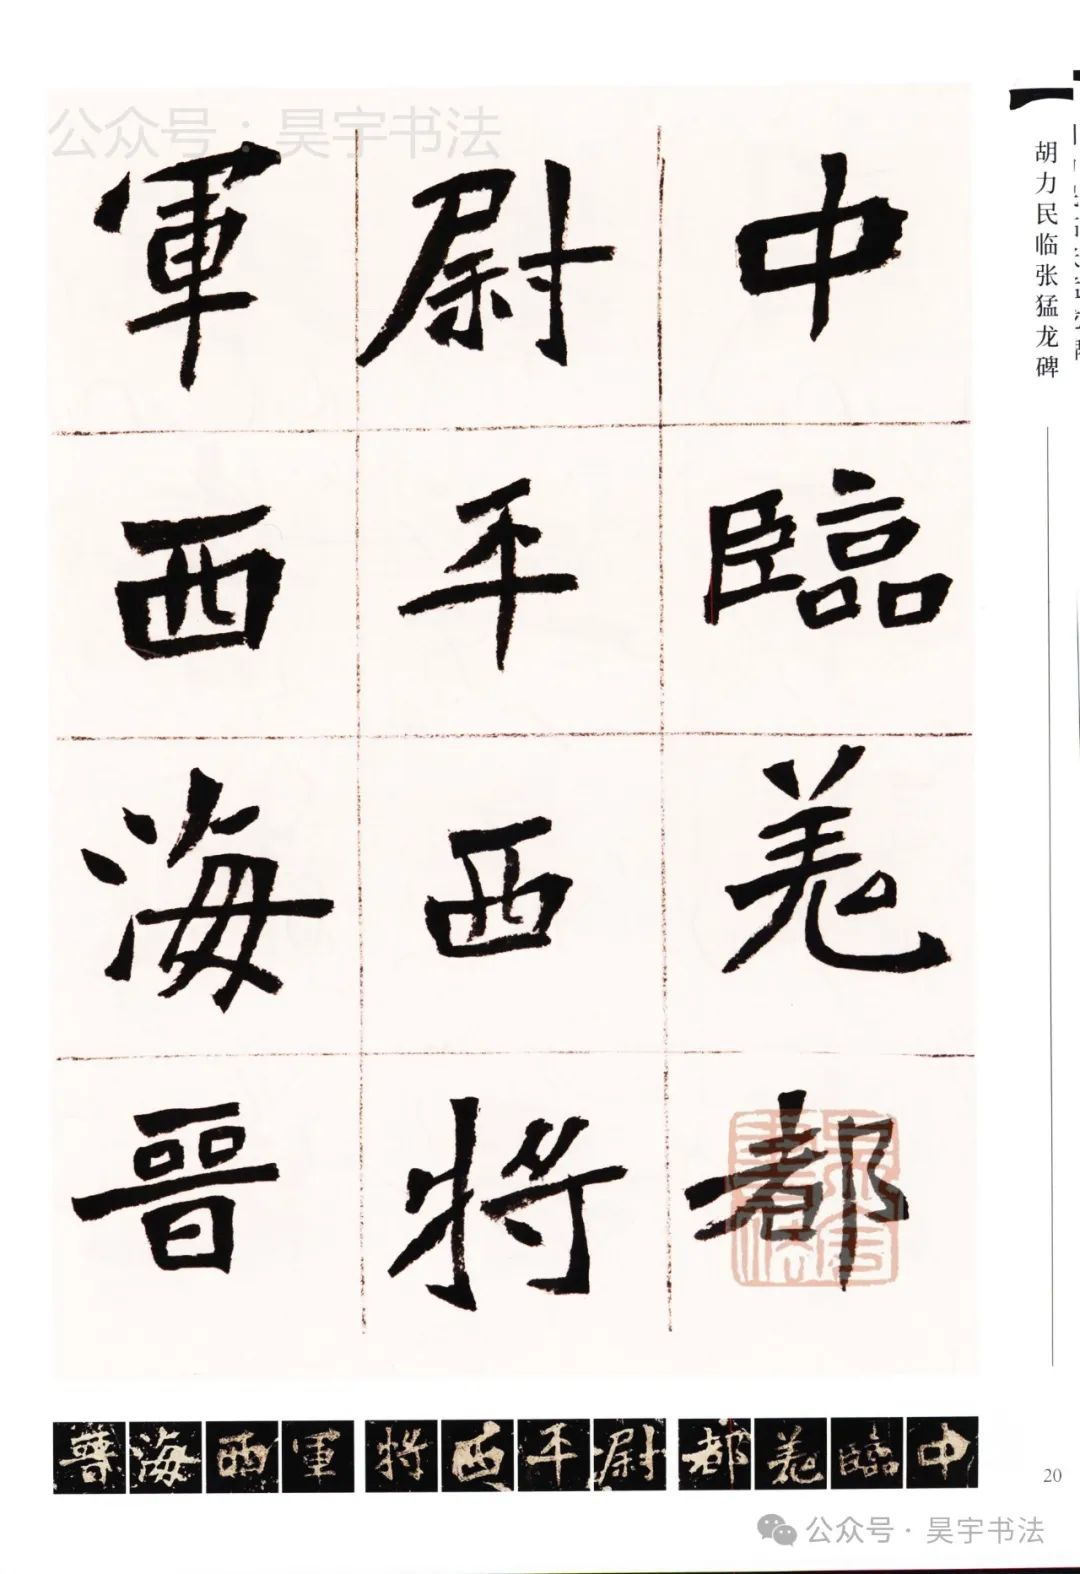 公众号：昊宇书法
胡力民临张猛龙碑
中臨羗都
尉平西将
軍西海晉
晉海西軍将西平尉都羗臨中
20
公众号·昊宇书法